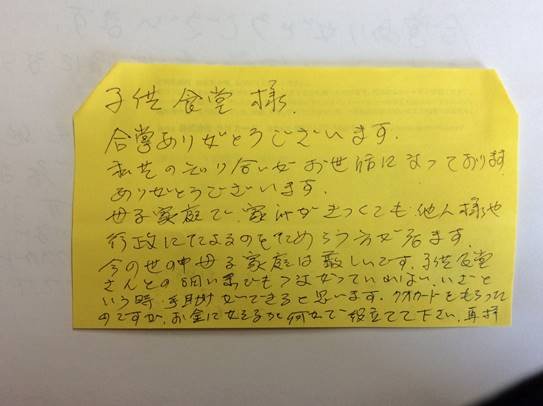 子供食堂 様.
合掌ありがとうございます.
私共の知り合いがお世話になっております
ありがとうございます.
母子家庭で、家計がきつくても他人様や
行政にたよるのをためらう方が居ます.
今の世の中母子家庭は厳しいです. 子供食堂
さんとの細い糸でもつながっていればいざと
いう時 手助けができると思います. クオカードをもらった
のですが、お金に変えるなど何かで役立てて下さい. 再拝